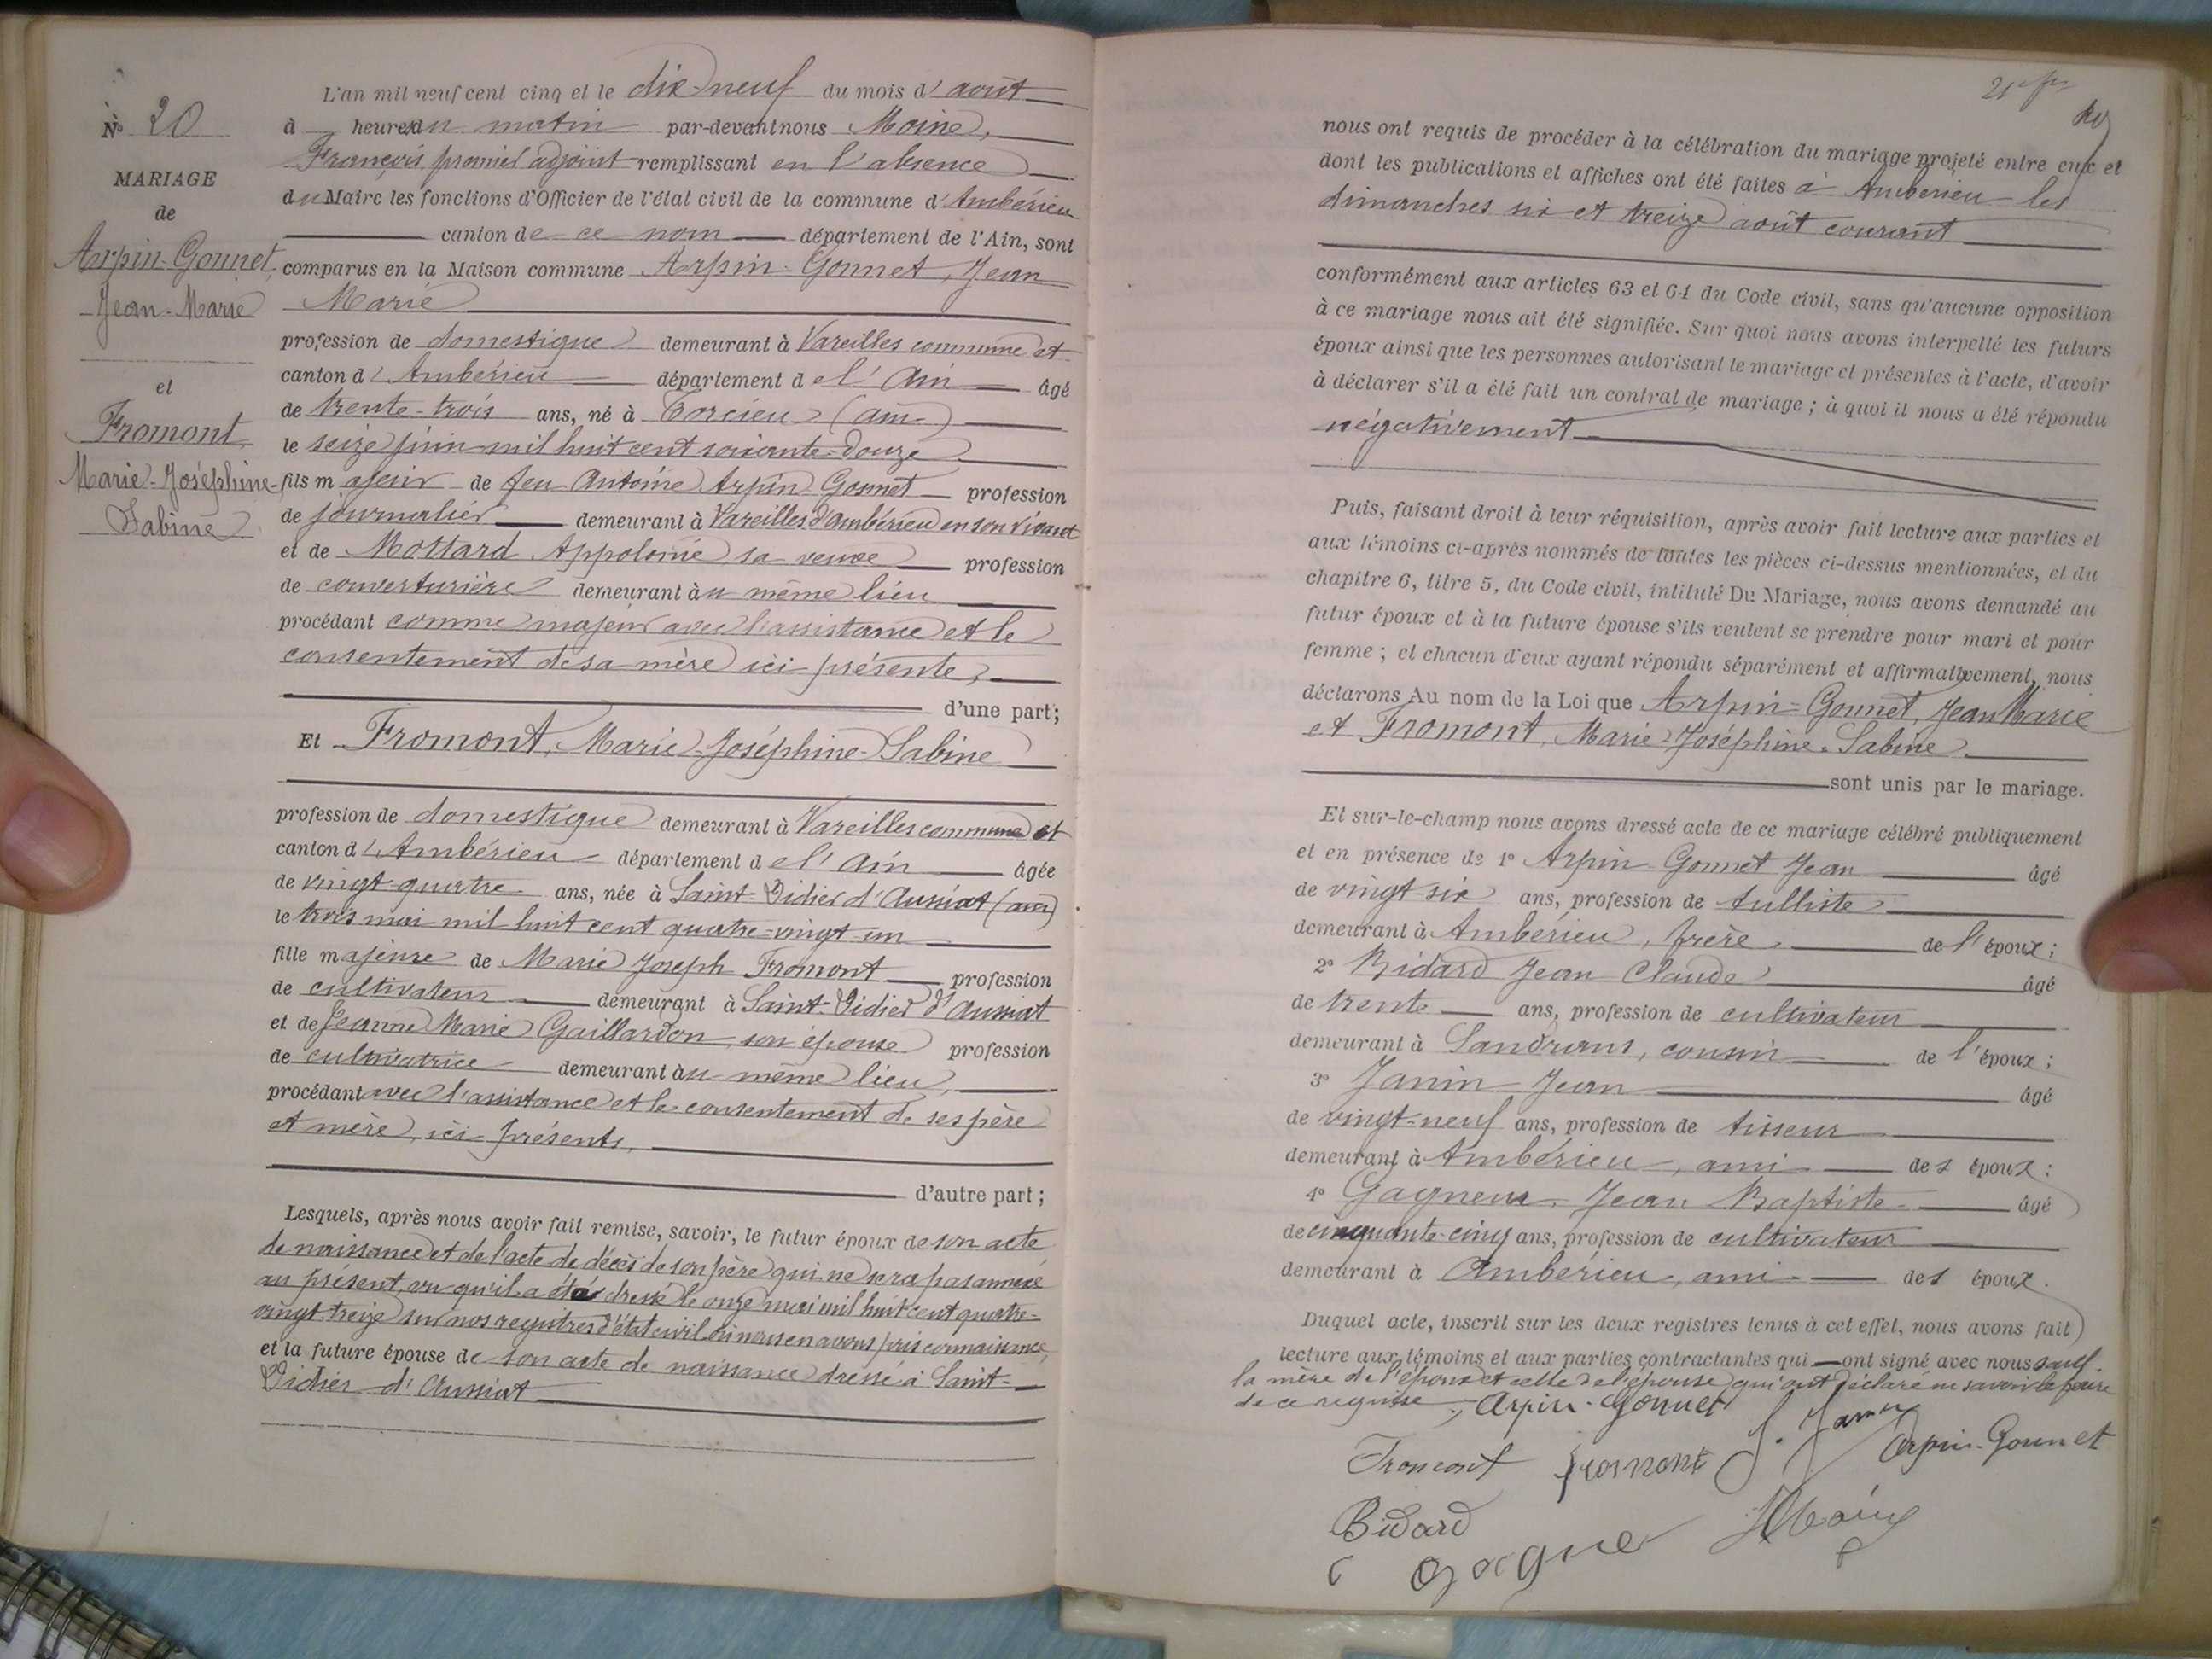 N° 20
MARIAGE
de
Arpin-Gonnet,
Jean-Marie
et
Fromont
Marie-Joséphine-
Sabine
L'an mil neuf cent cinq et le dix-neuf du mois d'août
à heures du matin par-devant nous Moine,
François, premier adjoint remplissant en l'absence
du Maire les fonctions d'Officier de l'état civil de la commune d'Ambérieu
canton de ce nom département de l'Ain, sont
comparus en la Maison commune Arpin-Gonnet, Jean
Marie
profession de domestique demeurant à Vareilles commune et
canton d'Ambérieu département de l'Ain âgé
de trente-trois ans, né à Torcieu (ain)
le seize juin mil huit cent soixante-douze
fils majeur de feu Antoine Arpin-Gonnet profession
de journalier demeurant à Vareilles d'Ambérieu en son vivant
et de Mottard Appolonie sa veuve profession
de couverturière demeurant au même lieu
procédant comme majeur avec l'assistance et le
consentement de sa mère ici présente,
d'une part;
Et Fromont, Marie-Joséphine-Sabine
profession de domestique demeurant à Vareilles commune et
canton d'Ambérieu département de l'Ain âgée
de vingt-quatre ans, née à Saint-Didier d'Aussiat (ain)
le trois mai mil huit cent quatre-vingt-un
fille majeure de Marie Joseph Fromont profession
de cultivateur demeurant à Saint-Didier d'Aussiat
et de Jeanne Marie Gaillardon son épouse profession
de cultivatrice demeurant au même lieu,
procédant avec l'assistance et le consentement de ses père
et mère, ici présents,
d'autre part;
Lesquels, après nous avoir fait remise, savoir, le futur époux de son acte
de naissance et de l'acte de décès de son père qui ne sera pas annexé
au présent, vu qu'il a été dressé le onze mai mil huit cent quatre-
vingt-treize sur nos registres d'état civil où nous en avons pris connaissance,
et la future épouse de son acte de naissance dressé à Saint-
Didier d'Aussiat
nous ont requis de procéder à la célébration du mariage projeté entre eux et
dont les publications et affiches ont été faites à Ambérieu les
dimanches six et treize août courant
conformément aux articles 63 et 64 du Code civil, sans qu'aucune opposition
à ce mariage nous ait été signifiée. Sur quoi nous avons interpellé les futurs
époux ainsi que les personnes autorisant le mariage et présentes à l'acte, d'avoir
à déclarer s'il a été fait un contrat de mariage; à quoi il nous a été répondu
négativement
Puis, faisant droit à leur réquisition, après avoir fait lecture aux parties et
aux témoins ci-après nommés de toutes les pièces ci-dessus mentionnées, et du
chapitre 6, titre 5, du Code civil, intitulé Du Mariage, nous avons demandé au
futur époux et à la future épouse s'ils veulent se prendre pour mari et pour
femme; et chacun d'eux ayant répondu séparément et affirmativement, nous
déclarons Au nom de la Loi que Arpin-Gonnet, Jean Marie
et Fromont, Marie-Joséphine-Sabine
sont unis par le mariage.
Et sur-le-champ nous avons dressé acte de ce mariage célébré publiquement
et en présence de 1° Arpin-Gonnet Jean âgé
de vingt six ans, profession de tulliste
demeurant à Ambérieu, frère de l'époux;
2° Bidard Jean Claude âgé
de trente ans, profession de cultivateur
demeurant à Sandrans, cousin de l'époux;
3° Janin Jean âgé
de vingt-neuf ans, profession de tisseur
demeurant à Ambérieu, ami des époux;
4° Gagneur, Jean Baptiste âgé
de cinquante-cinq ans, profession de cultivateur
demeurant à Ambérieu, ami des époux.
Duquel acte, inscrit sur les deux registres tenus à cet effet, nous avons fait
lecture aux témoins et aux parties contractantes qui ont signé avec nous sauf
la mère de l'époux et celle de l'épouse qui ont déclaré ne savoir le faire
de ce requise. Arpin-Gonnet
Fromont Fromont J. Janin Arpin-Gonnet
Bidard Moine
Gagneur